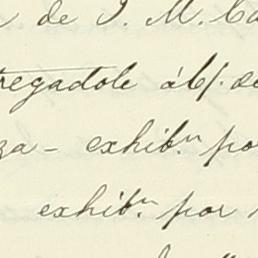 de J. M. Ca
regadole áb/. de
za - exhib.n po
exhib.n por